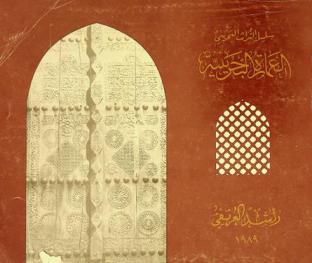 سلسلة التراث الشعبي
العمارة البحرينية
راشد العريفي
١٩٨٩